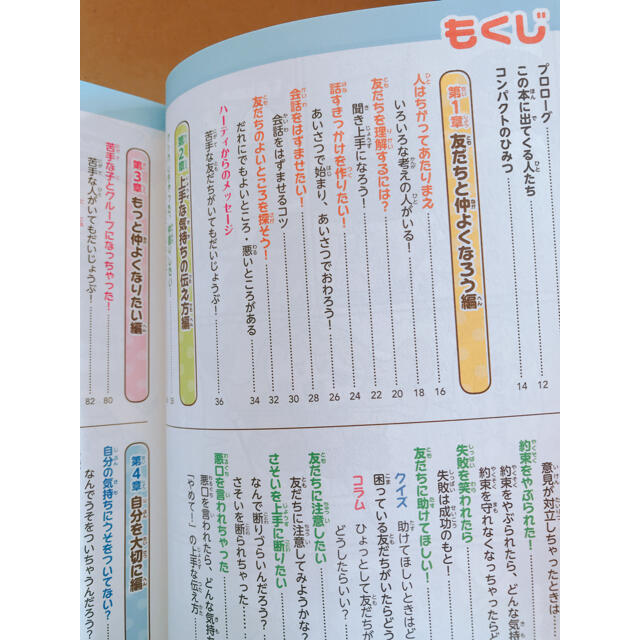 もくじ
プロローグ
この本に出てくる人たち 12
コンパクトのひみつ 14
第1章 友だちと仲よくなろう編
人はちがってあたりまえ 16
いろいろな考えの人がいる! 18
友だちを理解するには? 20
聞き上手になろう! 22
話すきっかけを作りたい! 24
あいさつで始まり、あいさつでおわろう! 26
会話をはずませたい! 28
会話をはずませるコツ 30
友だちのよいところを探そう! 32
だれにでもよいところ・悪いところがある 34
ハーティからのメッセージ
苦手な友だちがいてもだいじょうぶ! 36
第2章 上手な気持ちの伝え方編
意見が対立しちゃったときは
約束をやぶられた!
約束をやぶられたら、どんな気
約束を守れなくなっちゃったら
失敗を笑われたら
失敗は成功のもと!
友だちに助けてほしい!
クイズ 助けてほしいときはど
困っている友だちがいたらどう
どうしたらいい?
コラム ひょっとして友だちが
友だちに注意したい
友だちに注意してみようかな?
さそいを上手に断りたい
なんで断りづらいんだろう?
さそいを断られちゃった
悪口を言われちゃった
悪口を言われたら、どんな気持
「やめて!」の上手な伝え方
第3章 もっと仲よくなりたい編
苦手な子とグループになっちゃった! 80
苦手な人がいてもだいじょうぶ! 82
第4章 自分を大切に編
自分の気持ちにうそをついてない?
なんでうそをついちゃうんだろう?